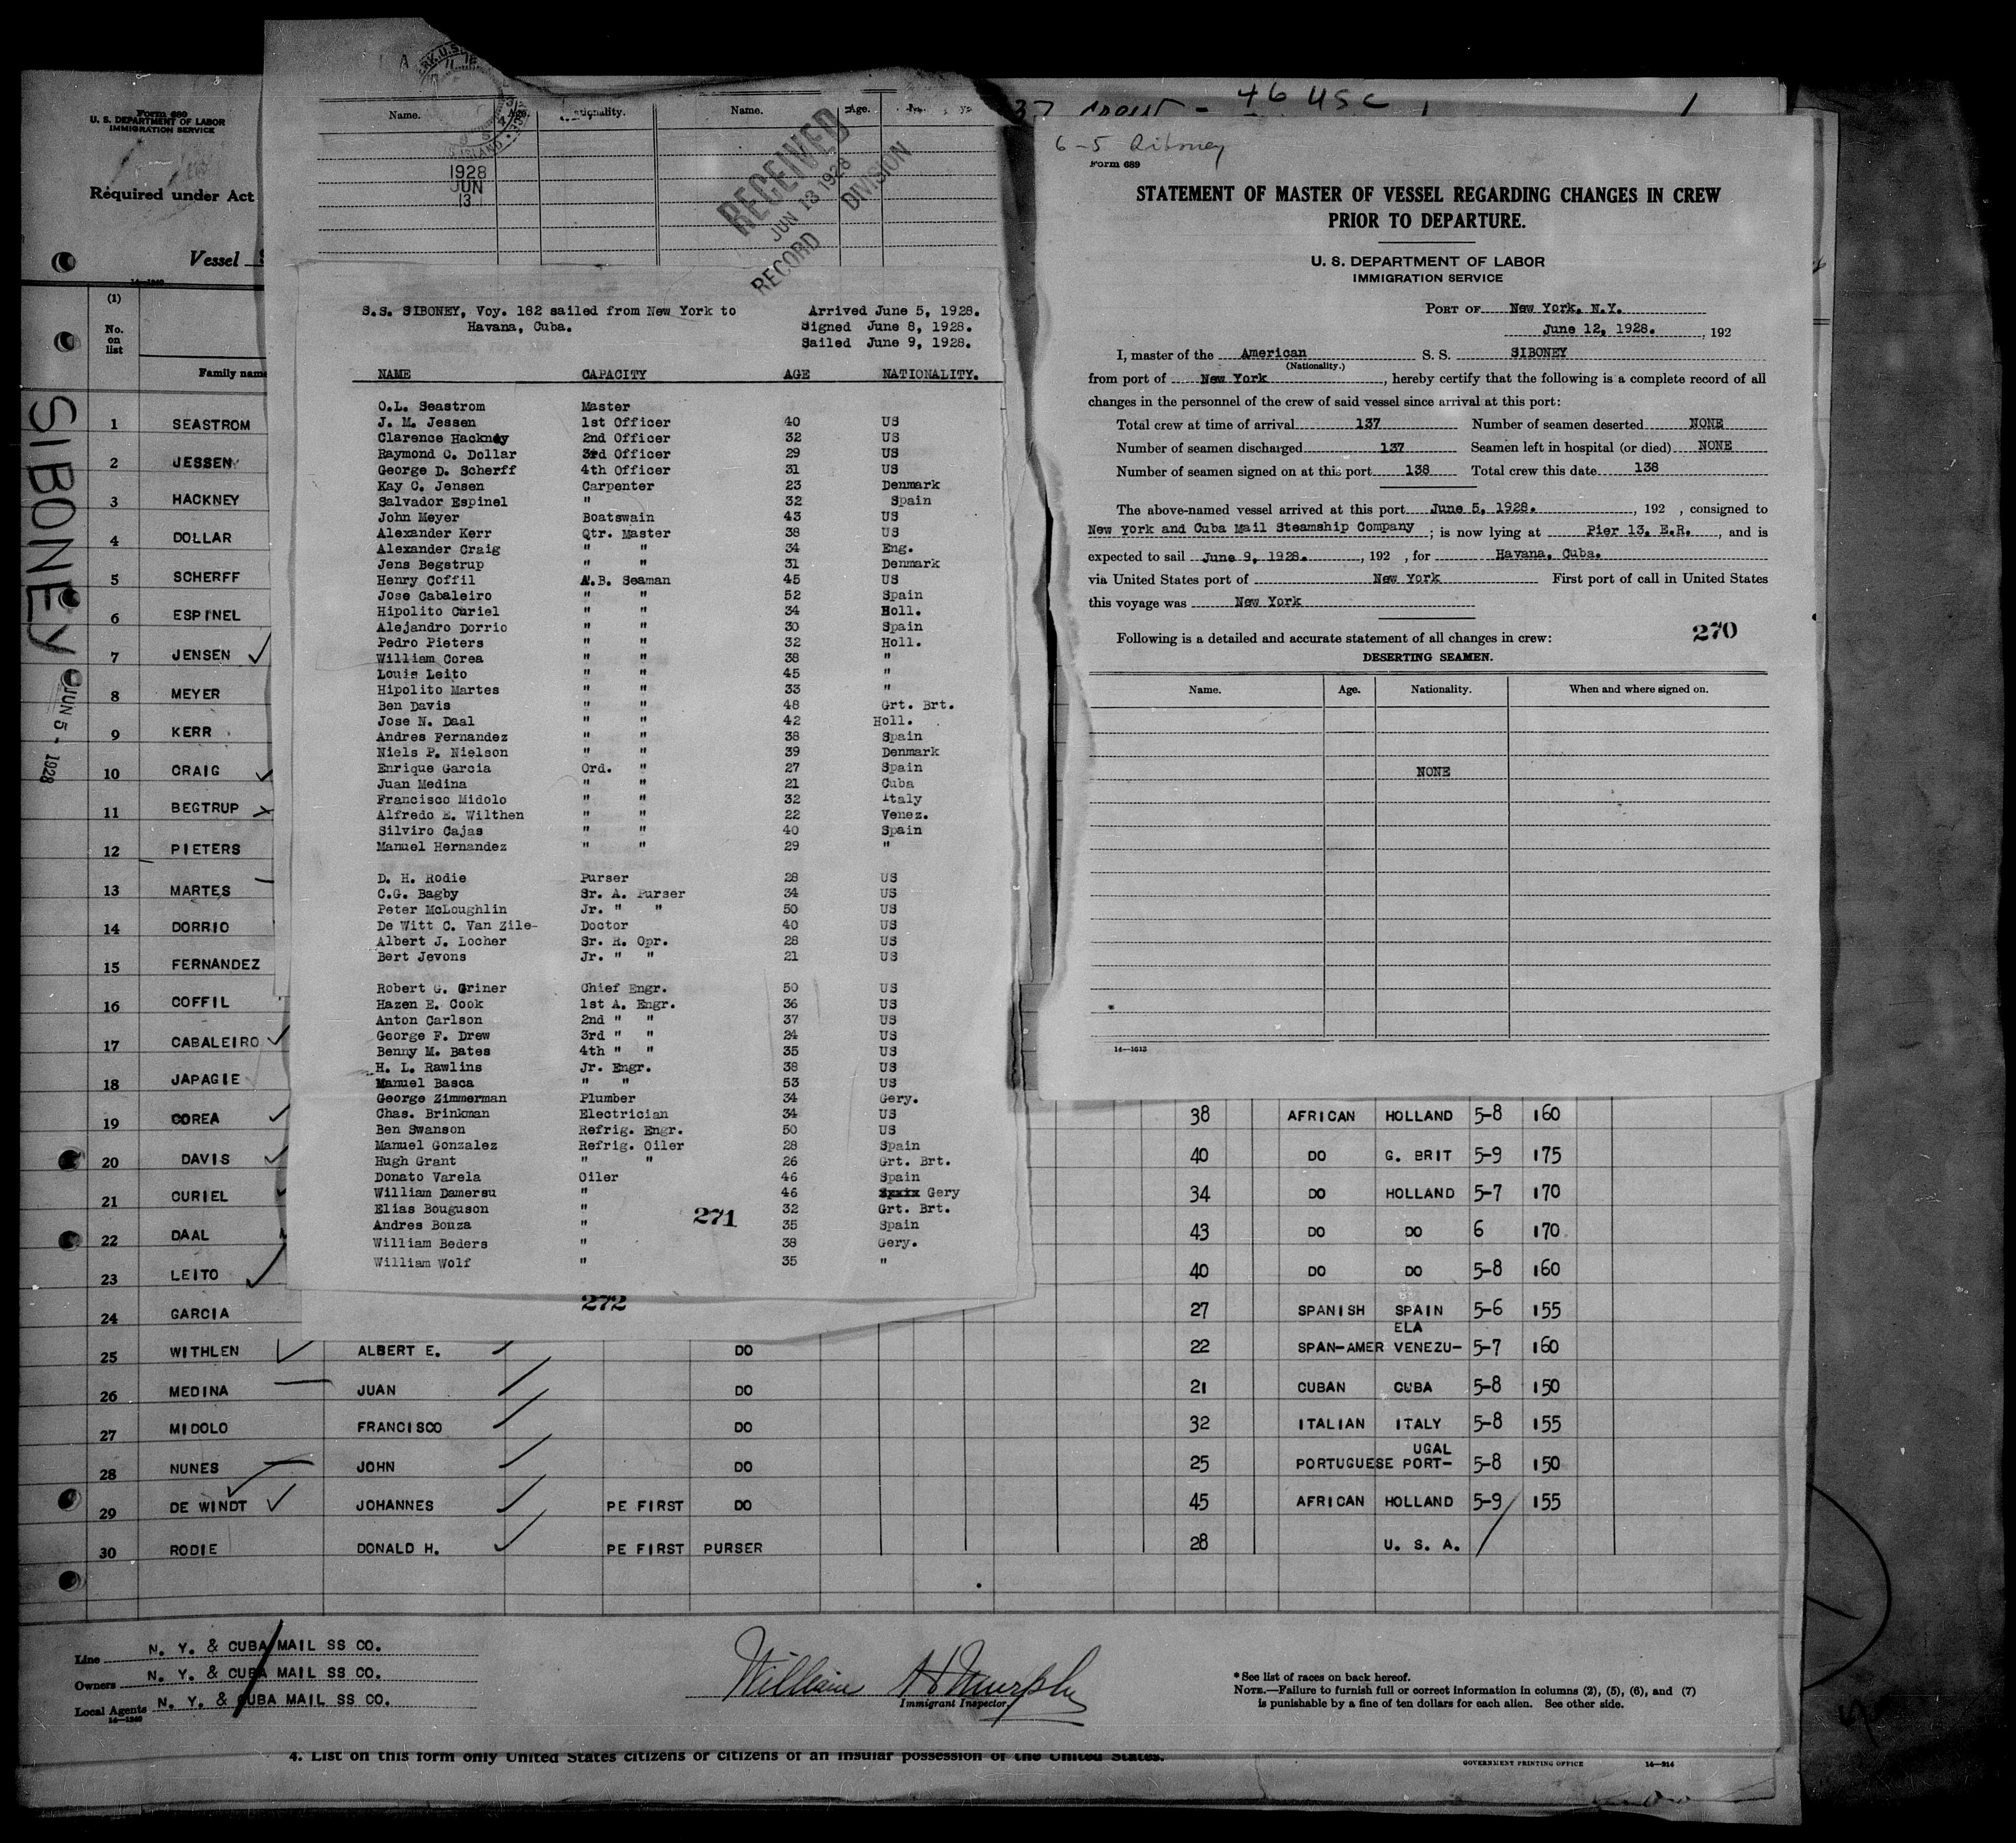 Form 689
U. S. DEPARTMENT OF LABOR
IMMIGRATION SERVICE
Required under Act
Vessel
14—1240
(1)
No.
on
list
Family name
SIBONEY
JUN 5 - 1928
1 SEASTROM
2 JESSEN
3 HACKNEY
4 DOLLAR
5 SCHERFF
6 ESPINEL
7 JENSEN
8 MEYER
9 KERR
10 CRAIG
11 BEGTRUP
12 PIETERS
13 MARTES
14 DORRIO
15 FERNANDEZ
16 COFFIL
17 CABALEIRO
18 JAPAGIE
19 COREA
20 DAVIS
21 CURIEL
22 DAAL
23 LEITO
24 GARCIA
Name. Age. Nationality. Name. Age.
1928
JUN
13
RECEIVED
JUN 13 1928
RECORD DIVISION
S.S. SIBONEY, Voy. 182 sailed from New York to Arrived June 5, 1928.
Havana, Cuba. Signed June 8, 1928.
Sailed June 9, 1928.
NAME CAPACITY AGE NATIONALITY.
O.L. Seastrom Master
J. M. Jessen 1st Officer 40 US
Clarence Hackney 2nd Officer 32 US
Raymond C. Dollar 3rd Officer 29 US
George D. Scherff 4th Officer 31 US
Kay C. Jensen Carpenter 23 Denmark
Salvador Espinel " 32 Spain
John Meyer Boatswain 43 US
Alexander Kerr Qtr. Master 38 US
Alexander Craig " " 34 Eng.
Jens Begstrup " " 31 Denmark
Henry Coffil A.B. Seaman 45 US
Jose Cabaleiro " " 52 Spain
Hipolito Curiel " " 34 Holl.
Alejandro Dorrio " " 30 Spain
Pedro Pieters " " 32 Holl.
William Corea " " 38 "
Louis Leito " " 45 "
Hipolito Martes " " 33 "
Ben Davis " " 48 Grt. Brt.
Jose N. Daal " " 42 Holl.
Andres Fernandez " " 38 Spain
Niels P. Nielson " " 39 Denmark
Enrique Garcia Ord. " 27 Spain
Juan Medina " " 21 Cuba
Francisco Midolo " " 32 Italy
Alfredo E. Wilthen " " 22 Venez.
Silviro Cajas " " 40 Spain
Manuel Hernandez " " 29 "
D. H. Rodie Purser 28 US
C.G. Bagby Sr. A. Purser 34 US
Peter McLoughlin Jr. " " 50 US
De Witt C. Van Zile- Doctor 40 US
Albert J. Locher Sr. R. Opr. 28 US
Bert Jevons Jr. " " 21 US
Robert G. Griner Chief Engr. 50 US
Hazen E. Cook 1st A. Engr. 36 US
Anton Carlson 2nd " " 37 US
George F. Drew 3rd " " 24 US
Benny M. Bates 4th " " 35 US
H. L. Rawlins Jr. Engr. 38 US
Manuel Basca " " 53 US
George Zimmerman Plumber 34 Gery.
Chas. Brinkman Electrician 34 US
Ben Swanson Refrig. Engr. 50 US
Manuel Gonzalez Refrig. Oiler 28 Spain
Hugh Grant " " 26 Grt. Brt.
Donato Varela Oiler 46 Spain
William Damersu " 46 Gery
Elias Bouguson " 32 Grt. Brt.
Andres Bouza " 35 Spain
William Beders " 38 Gery.
William Wolf " 35 "
271
272
46 USC
6-5 Siboney
Form 689
STATEMENT OF MASTER OF VESSEL REGARDING CHANGES IN CREW
PRIOR TO DEPARTURE.
U. S. DEPARTMENT OF LABOR
IMMIGRATION SERVICE
PORT OF New York, N.Y.
June 12, 1928. , 192
I, master of the American S. S. SIBONEY
(Nationality.)
from port of New York , hereby certify that the following is a complete record of all
changes in the personnel of the crew of said vessel since arrival at this port:
Total crew at time of arrival 137 Number of seamen deserted NONE
Number of seamen discharged 137 Seamen left in hospital (or died) NONE
Number of seamen signed on at this port 138 Total crew this date 138
The above-named vessel arrived at this port June 5, 1928. , 192 , consigned to
New York and Cuba Mail Steamship Company ; is now lying at Pier 13, E.R. , and is
expected to sail June 9, 1928. , 192 , for Havana, Cuba.
via United States port of New York First port of call in United States
this voyage was New York
Following is a detailed and accurate statement of all changes in crew: 270
DESERTING SEAMEN.
Name. Age. Nationality. When and where signed on.
NONE
14—1613
38 AFRICAN HOLLAND 5-8 160
40 DO G. BRIT 5-9 175
34 DO HOLLAND 5-7 170
43 DO DO 6 170
40 DO DO 5-8 160
27 SPANISH SPAIN 5-6 155
ELA
25 WITHLEN ALBERT E. DO 22 SPAN-AMER VENEZU- 5-7 160
26 MEDINA JUAN DO 21 CUBAN CUBA 5-8 150
27 MIDOLO FRANCISCO DO 32 ITALIAN ITALY 5-8 155
UGAL
28 NUNES JOHN DO 25 PORTUGUESE PORT- 5-8 150
29 DE WINDT JOHANNES PE FIRST DO 45 AFRICAN HOLLAND 5-9 155
30 RODIE DONALD H. PE FIRST PURSER 28 U. S. A.
Line N. Y. & CUBA MAIL SS CO.
Owners N. Y. & CUBA MAIL SS CO.
Local Agents N. Y. & CUBA MAIL SS CO.
14—1240
William H Murphy
Immigrant Inspector
*See list of races on back hereof.
NOTE.—Failure to furnish full or correct information in columns (2), (5), (6), and (7)
is punishable by a fine of ten dollars for each alien. See other side.
4. List on this form only United States citizens or citizens of an insular possession of the United States.
GOVERNMENT PRINTING OFFICE 14—914